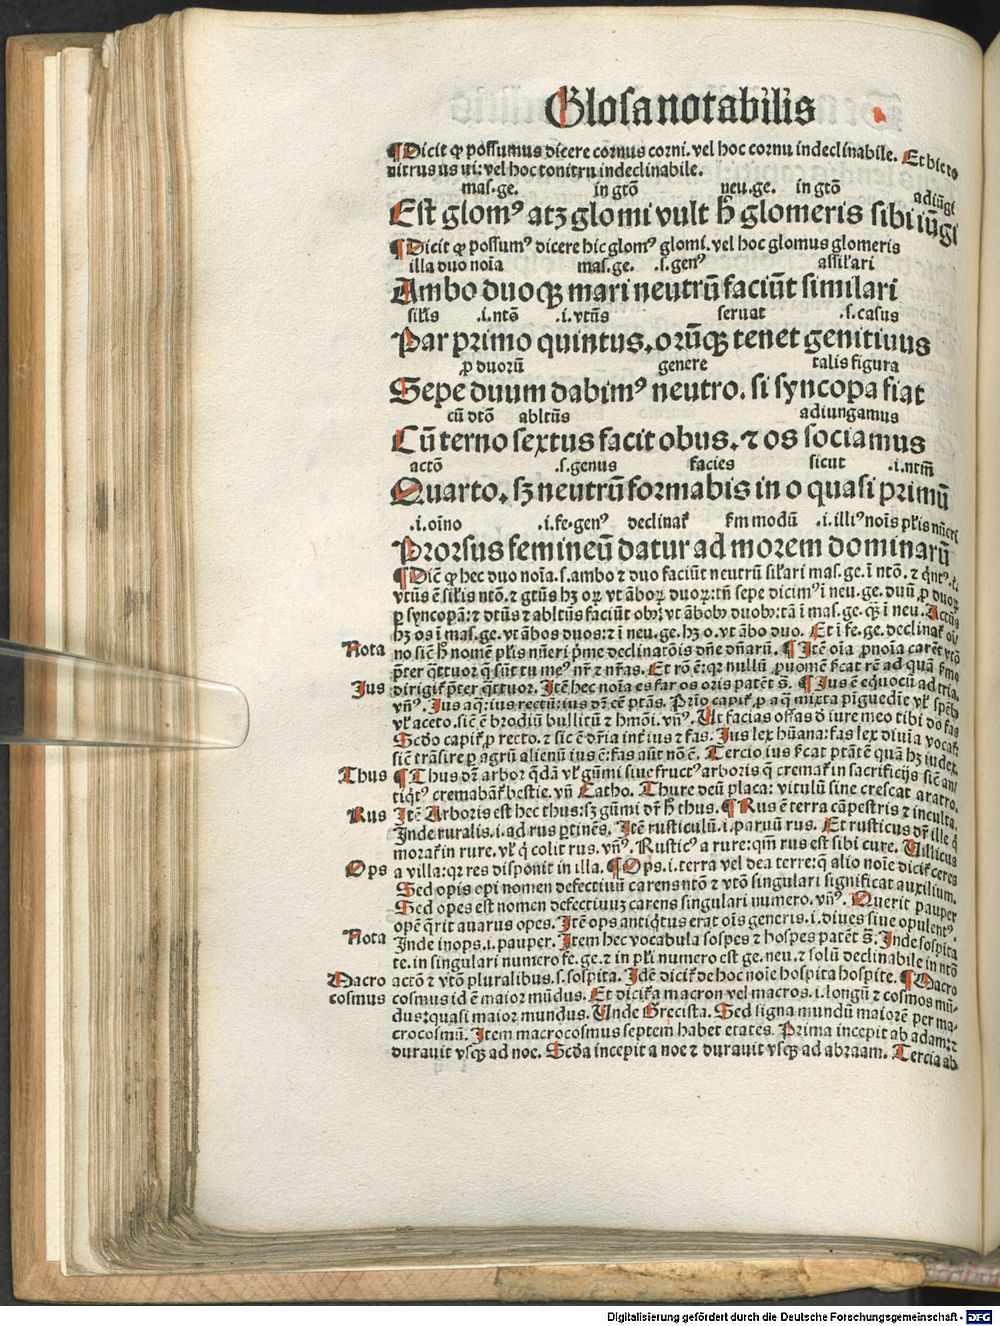 Glosa notabilis
¶Dicit ꝙ possumus dicere cornus corni. vel hoc cornu indeclinabile. Et hic to
nitrus us ui: vel hoc tonitru indeclinabile.
mas. ge. in gtō neu. ge. in gtō adiūgi
Est glomꝰ atꝫ glomi vult h̄ glomeris sibi iūgi
¶Dicit ꝙ possumꝰ dicere hic glomꝰ glomi. vel hoc glomus glomeris
illa duo noīa mas. ge. .s. genꝰ assilari
Ambo duoqꝫ mari neutrū faciūt similari
silis .i. ntō .i. vtūs seruat .s. casus
Par primo quintus, orūqꝫ tenet genitiuus
ꝓ duorū genere talis figura
Sepe duum dabimꝰ neutro. si syncopa fiat
cū dtō abltūs adiungamus
Cū terno sextus facit obus. ⁊ os sociamus
actō .s. genus facies sicut .i. ntm̄
Quarto, sꝫ neutrū formabis in o quasi primū
.i. oīno .i. fe. genꝰ declinar̄ ẜm modū .i. illiꝰ noīs plis nūeri
Prorsus femineū datur ad morem dominarū
¶Dic̄ ꝙ hec duo noīa .s. ambo ⁊ duo faciūt neutrū silari mas. ge. ī ntō. ⁊
vtūs ē silis ntō. ⁊ gtūs hꝫ oꝝ vt āboꝝ duoꝝ: tn̄ sepe dicimꝰ ī neu. ge. duū ꝓ duoꝝ
ꝑ syncopā: ⁊ dtūs ⁊ abltūs faciūt
hꝫ os ī mas. ge. vt ābos duos: ⁊ ī neu. ge. hꝫ o. vt ābo duo. Et ī fe. ge. declinar̄ oī
Nota no sic̄ h̄ nomē plis nūeri pme declinatōis dn̄e dn̄arū. ¶Itē oīa ꝓnoīa carēt vtō
Ius dirigit p̄ter qttuor. Itē hec noīa es far os oris patēt ſ. ¶Ius ē equocū ad tria.
vn̄ꝰ. Ius aq: ius rectū: ius
vl aceto. sic̄ ē brodiū bullitū ⁊ hmōi. vn̄ꝰ. Ut facias offas ius iure meo tibi do fas
Scd̄o capit̄ ꝓ recto. ⁊ sic ē dr̄ia int̄ ius ⁊ fas. Ius lex hūana: fas lex diuīa vocat̄
sic̄ trāsire ꝑ agrū alienū ius ē: fas aūt nō ē. Tercio ius
Thus ¶Thus dr̄ arbor qdā vl gūmi siue fructꝰ arboris q̄ cremat̄ in sacrificijs sic̄ an/
tiqtꝰ cremabāt̄ bestie. vn̄ Catho. Thure deū placa: vitulū sine crescat aratro.
Rus Itē Arboris est hec thus: sꝫ gūmi dr̄ h̄ thus. ¶Rus ē terra cāpestris ⁊ inculta.
Inde ruralis .i. ad rus ꝑtinēs. Itē rusticulū .i. paruū rus. Et rusticus dr̄ ille q
morat̄ in rure. vl q colit rus. vn̄ꝰ. Rusticꝰ a rure: qm̄ rus est sibi cure. Uillicus
Ops a villa: qꝛ res disponit in illa. ¶Ops .i. terra vel dea terre: q̄ alio noīe dicit̄ ceres
Sed opis opi nomen defectiuū carens ntō ⁊ vtō singulari significat auxilium.
Sed opes est nomen defectiuuꝫ carens singulari numero. vn̄ꝰ. Querit pauper
opē qrit auarus opes. Itē ops antiqtus erat oīs generis .i. diues siue opulentꝰ.
Nota Inde inops .i. pauper. Item hec vocabula sospes ⁊ hospes patēt ſ. Inde sospita
te. in singulari numero fe. ge. ⁊ in pli numero est ge. neu. ⁊ solū declinabile in ntō
Macro actō ⁊ vtō pluralibus .s. sospita. Idē dicit̄ de hoc noīe hospita hospite. ¶Macro
cosmus cosmus id ē maior mūdus. Et dicit̄ a macron vel macros .i. longū ⁊ cosmos mū-
dus: quasi maior mundus. Unde Grecista. Sed signa mundū maiorē per ma-
crocosmū. Item macrocosmus septem habet etates. Prima incepit ab adam: ⁊
durauit vsqꝫ ad noe. Scd̄a incepit a noe ⁊ durauit vsqꝫ ad abraam. Tercia ab
Digitalisierung gefördert durch die Deutsche Forschungsgemeinschaft - DFG